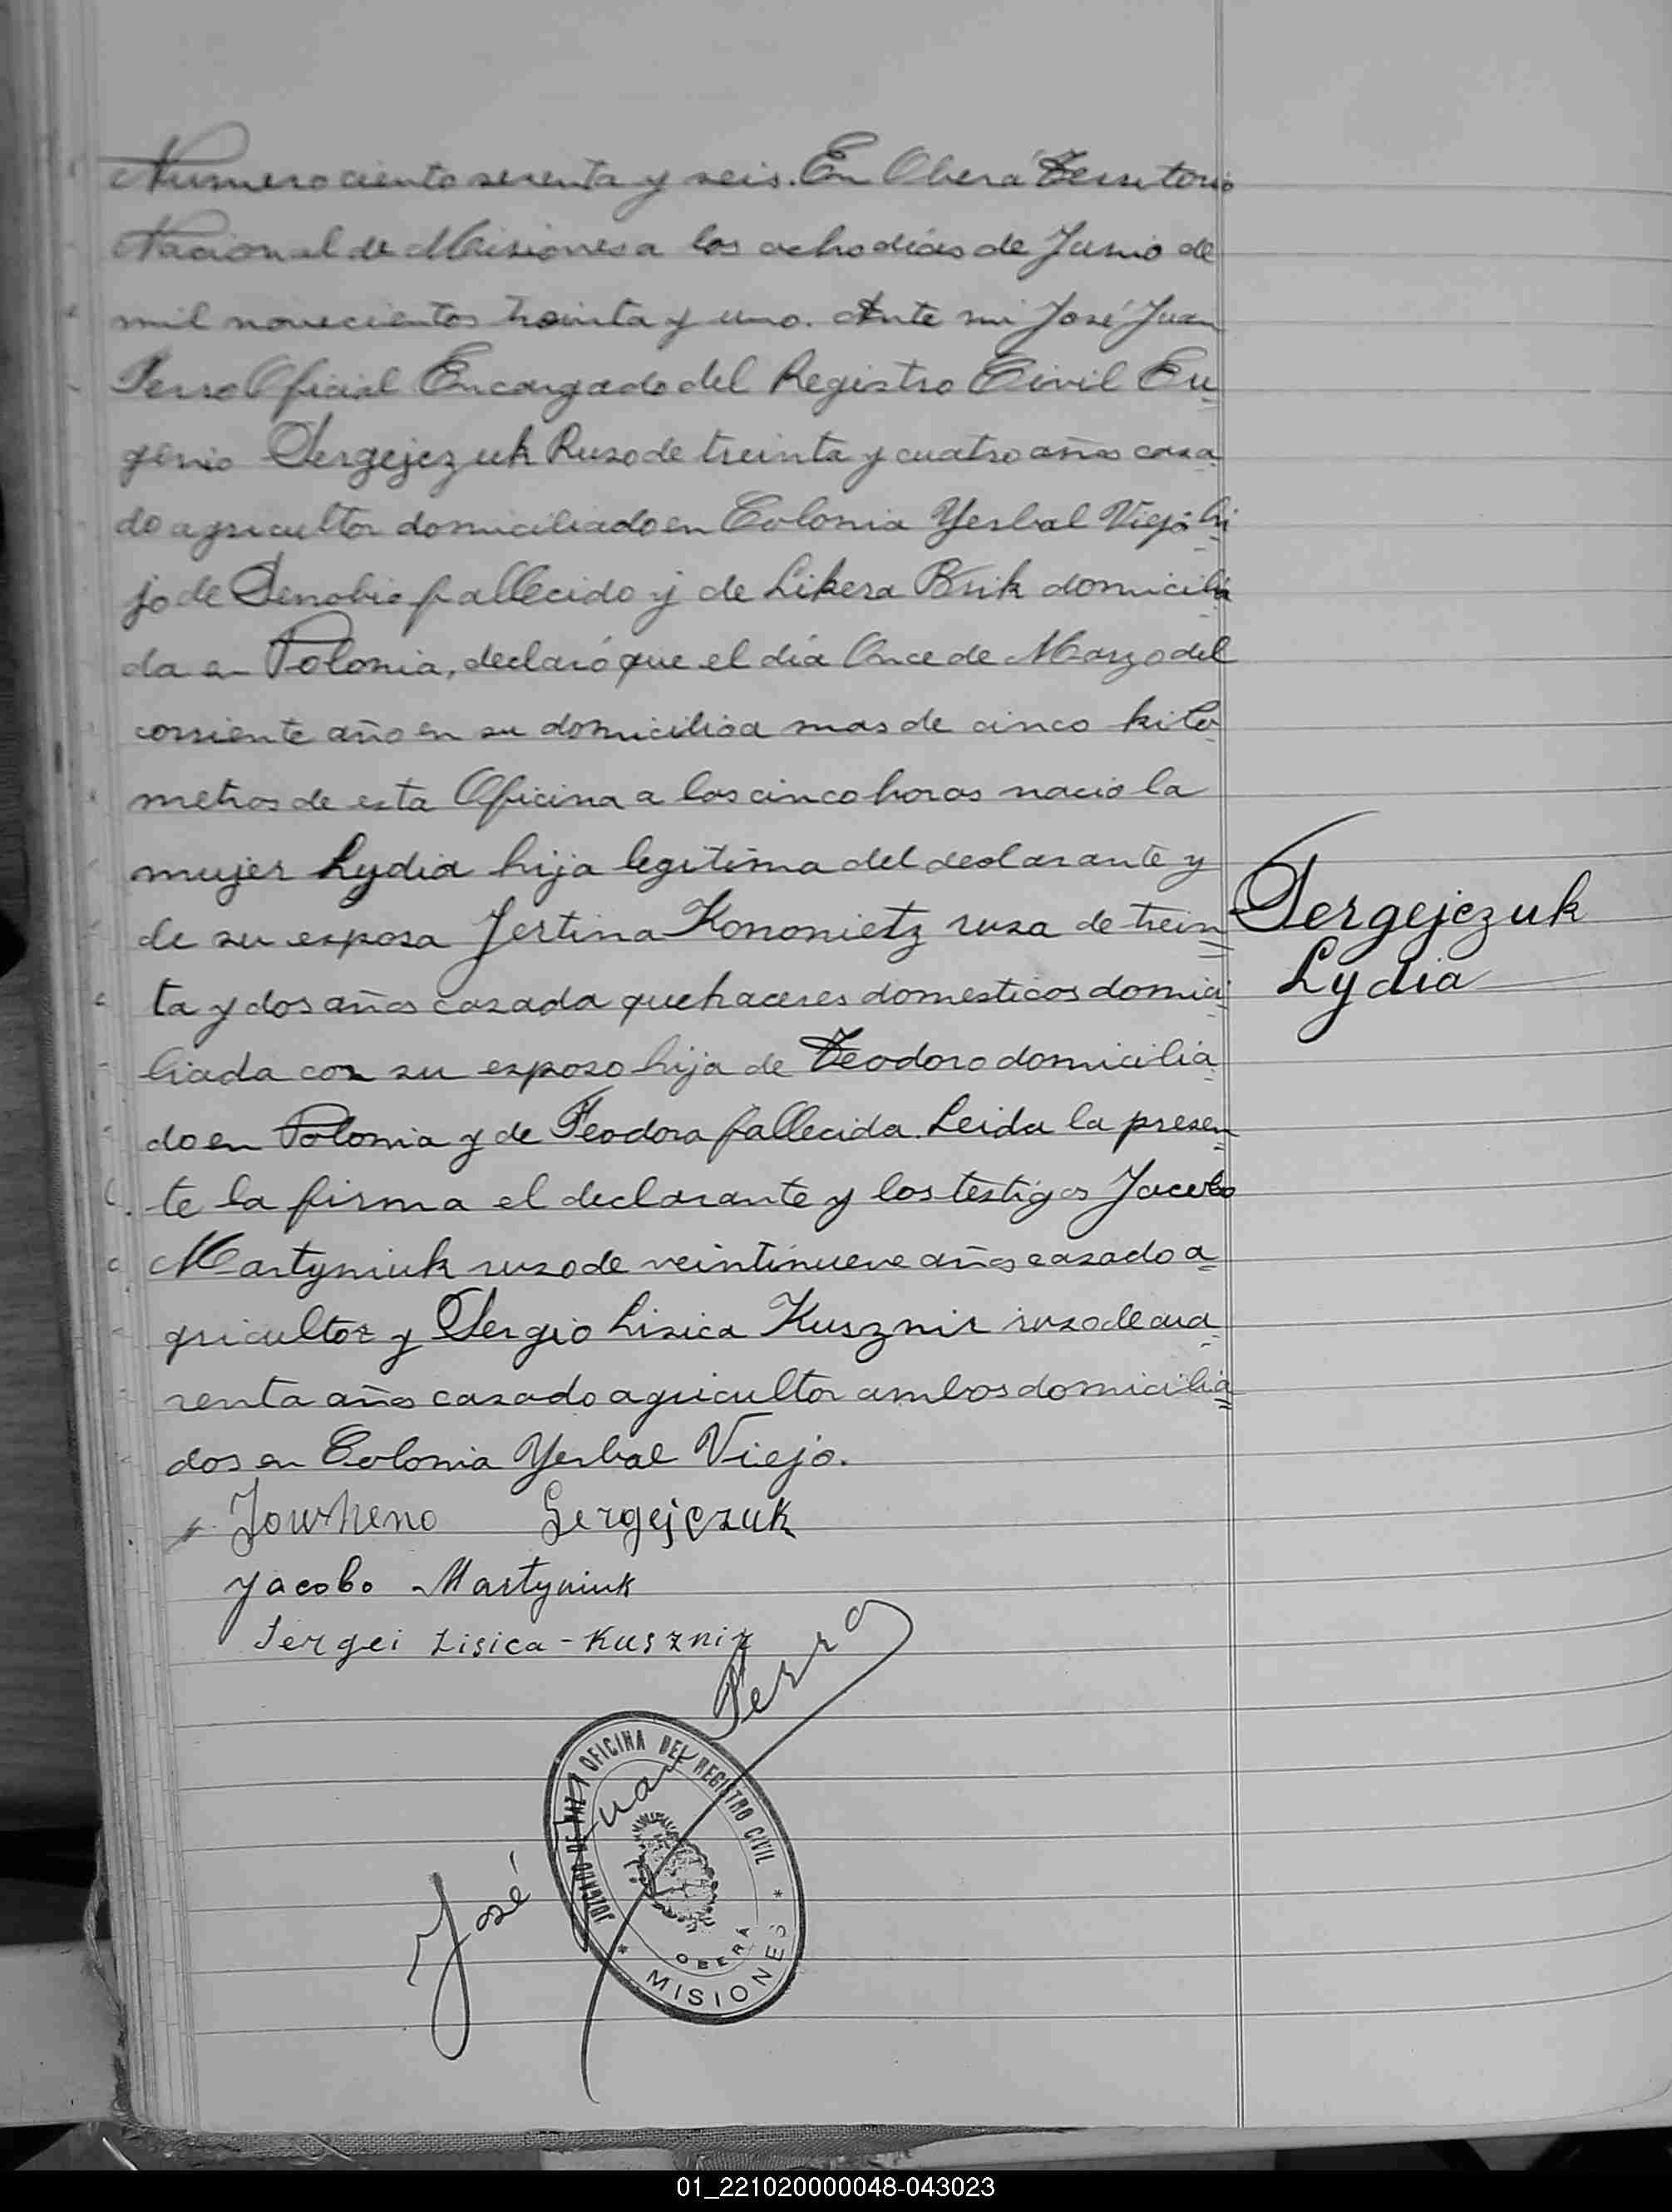 Numero ciento setenta y seis. En Oberá Territorio
Nacional de Misiones a los ocho dias de Junio de
mil novecientos treinta y uno. Ante mi José Juan
Perro Oficial Encargado del Registro Civil Eu=
genio Sergejczuk Ruso de treinta y cuatro años casa
do agricultor domiciliado en Colonia Yerbal Viejo hi
jo de Senobio fallecido y de Likera Bsik domicilia
da en Polonia, declaró que el día Once de Marzo del
corriente año en su domicilio a mas de cinco kilo
metros de esta Oficina a las cinco horas nacio la
mujer Lydia hija legitima del declarante y
de su esposa Jertina Kononietz rusa de trein=
ta y dos años casada quehaceres domesticos domici
liada con su esposo hija de Teodoro domicilia
do en Polonia y de Feodora fallecida. Leida la presen
te la firma el declarante y los testigos Jacobo
Martyniuk ruso de veintinueve años casado a=
gricultor y Sergio Lisica Kusznir ruso de cua
renta años casado agricultor ambos domicilia=
dos en Colonia Yerbal Viejo.
Sergejczuk
Lydia
Sergejczuk
Jacobo Martyniuk
Sergei Lisica-Kusznir
José Juan Perro
JUZGADO DE PAZ Y OFICINA DEL REGISTRO CIVIL
OBERÁ
* MISIONES *
01_221020000048-043023